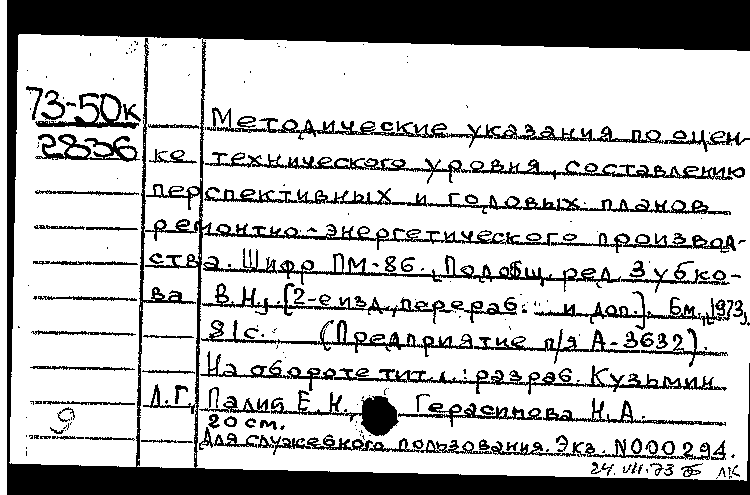 73-50к
2836
Методические указания по оцен-
ке технического уровня, составлению
перспективных и годовых планов
ремонтно-энергетического производ-
ства. Шифр ПМ-86. Под общ. ред. Зубко-
ва В.Н. [2-е изд., перераб. и доп.]. Б.м., 1973,
81с. (Предприятие п/я А-3632).
На обороте тит. л.: разраб. Кузьмин
Л.Г., Палий Е.Н., Герасимова Н.А.
9
20 см.
Для служебного пользования. Экз. N000294.
24.VII.73 ЛК